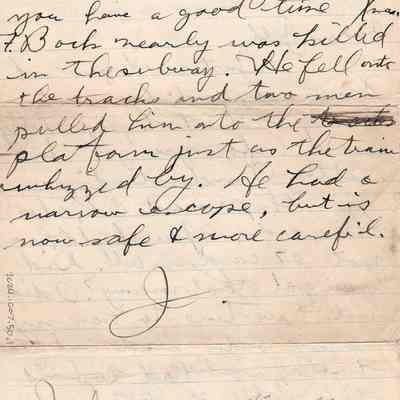 you have a good time
F. Bock nearly was killed
in the subway. He fell onto
the tracks and two men
pulled him onto the
platform just as the train
whizzed by. He had a
narrow escape, but is
now safe & more careful.
J.